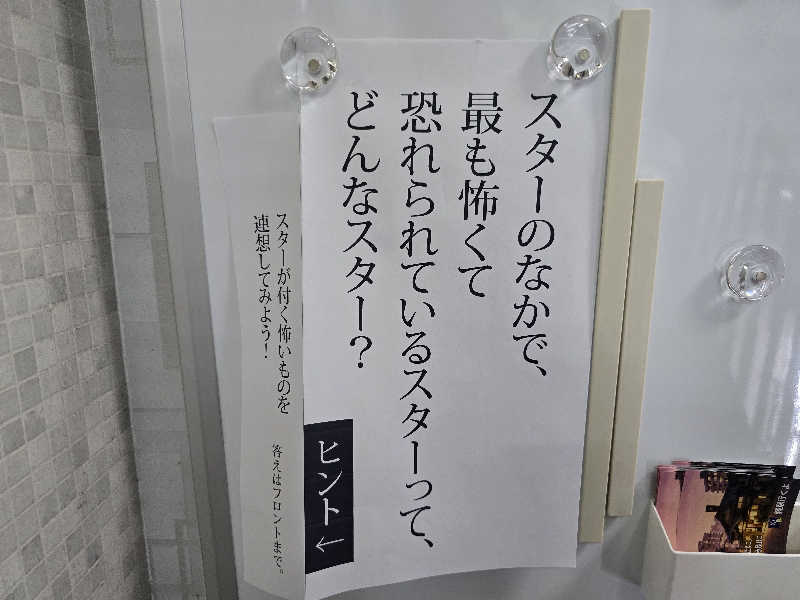 スターのなかで、
最も怖くて
恐れられているスターって、
どんなスター？
ヒント←
スターが付く怖いものを
連想してみよう！
答えはフロントまで。